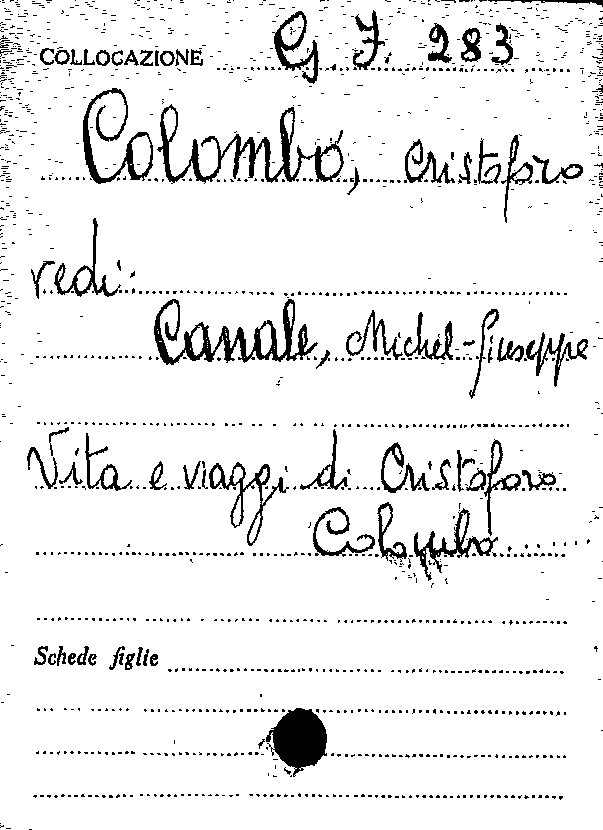 COLLOCAZIONE G J. 283
Colombo, Cristoforo
vedi:
Canale, Michel-Giuseppe
Vita e viaggi di Cristoforo
Colombo.......
Schede figlie